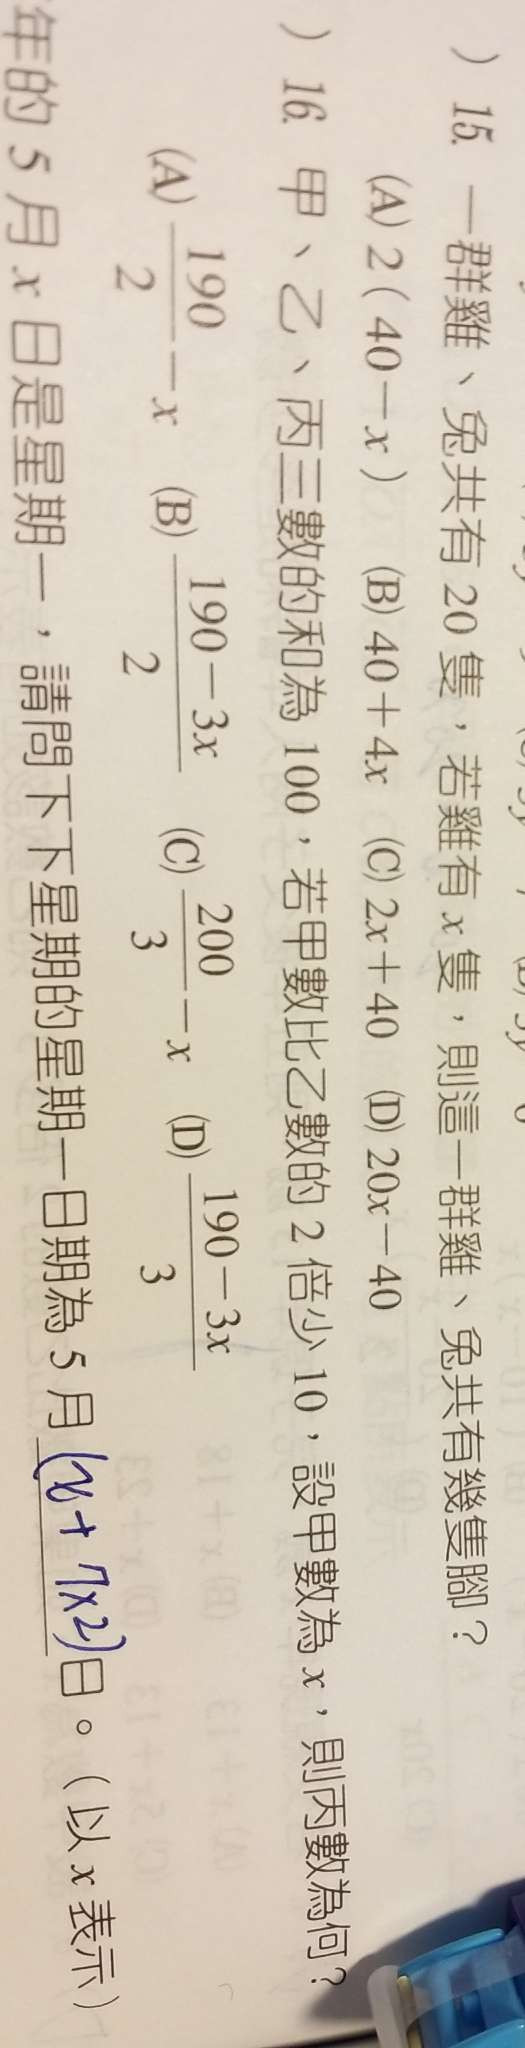 ) 15. 一群雞、兔共有 20 隻，若雞有 x 隻，則這一群雞、兔共有幾隻腳？
(A) 2 ( 40－x )　(B) 40＋4x　(C) 2x＋40　(D) 20x－40
) 16. 甲、乙、丙三數的和為 100，若甲數比乙數的 2 倍少 10，設甲數為 x，則丙數為何？
(A) 190/2－x　(B) (190－3x)/2　(C) 200/3－x　(D) (190－3x)/3
年的 5 月 x 日是星期一，請問下下星期的星期一日期為 5 月 (x+7×2) 日。（以 x 表示）